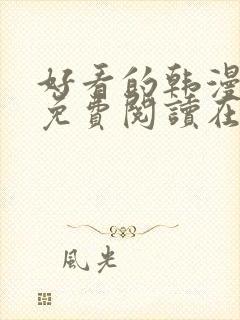 好看的韩漫
免費閱讀在
風光